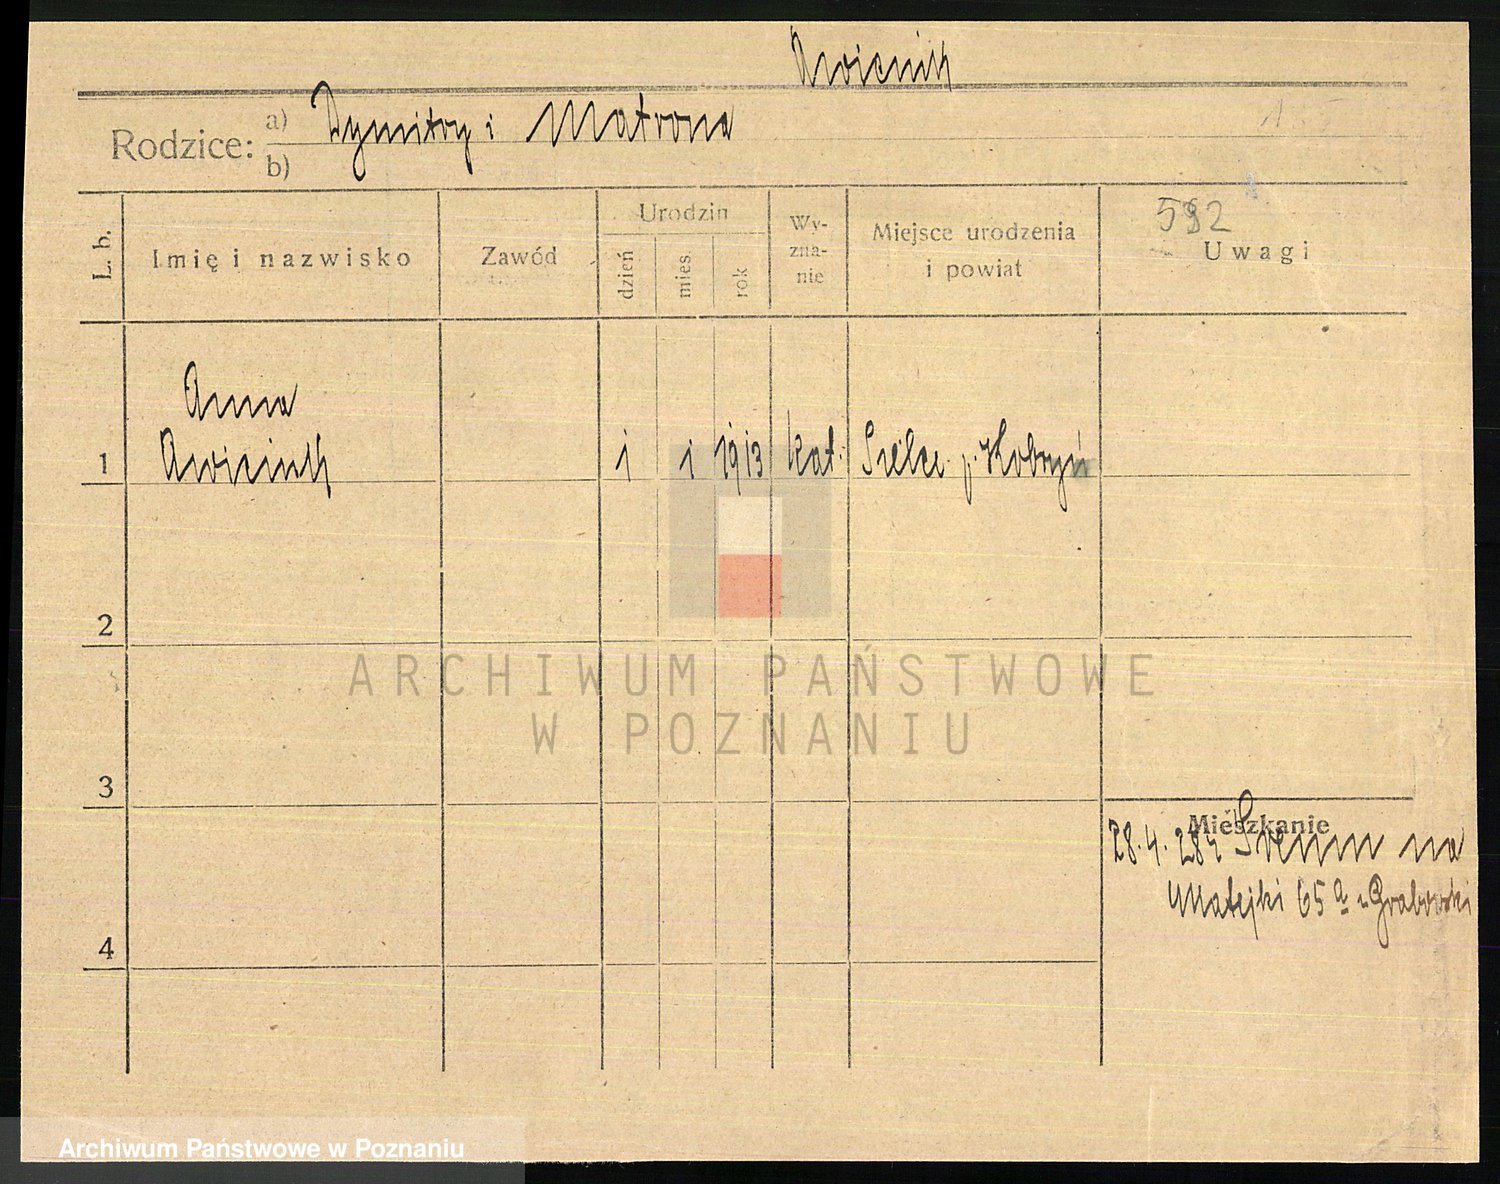 Awicnik
Rodzice: a) Dymitry i Matrona
b)
L. b.
Imię i nazwisko
Zawód
Urodzin
dzień
mies.
rok
Wy-
zna-
nie
Miejsce urodzenia
i powiat
592
Uwagi
Anna
1 1 1 1913 kat. Sielce p. Kobryń
2
ARCHIWUM PAŃSTWOWE
W POZNANIU
3
Mieszkanie
28.4.
na
4
Matejki 65 a u Grabowski
Archiwum Państwowe w Poznaniu